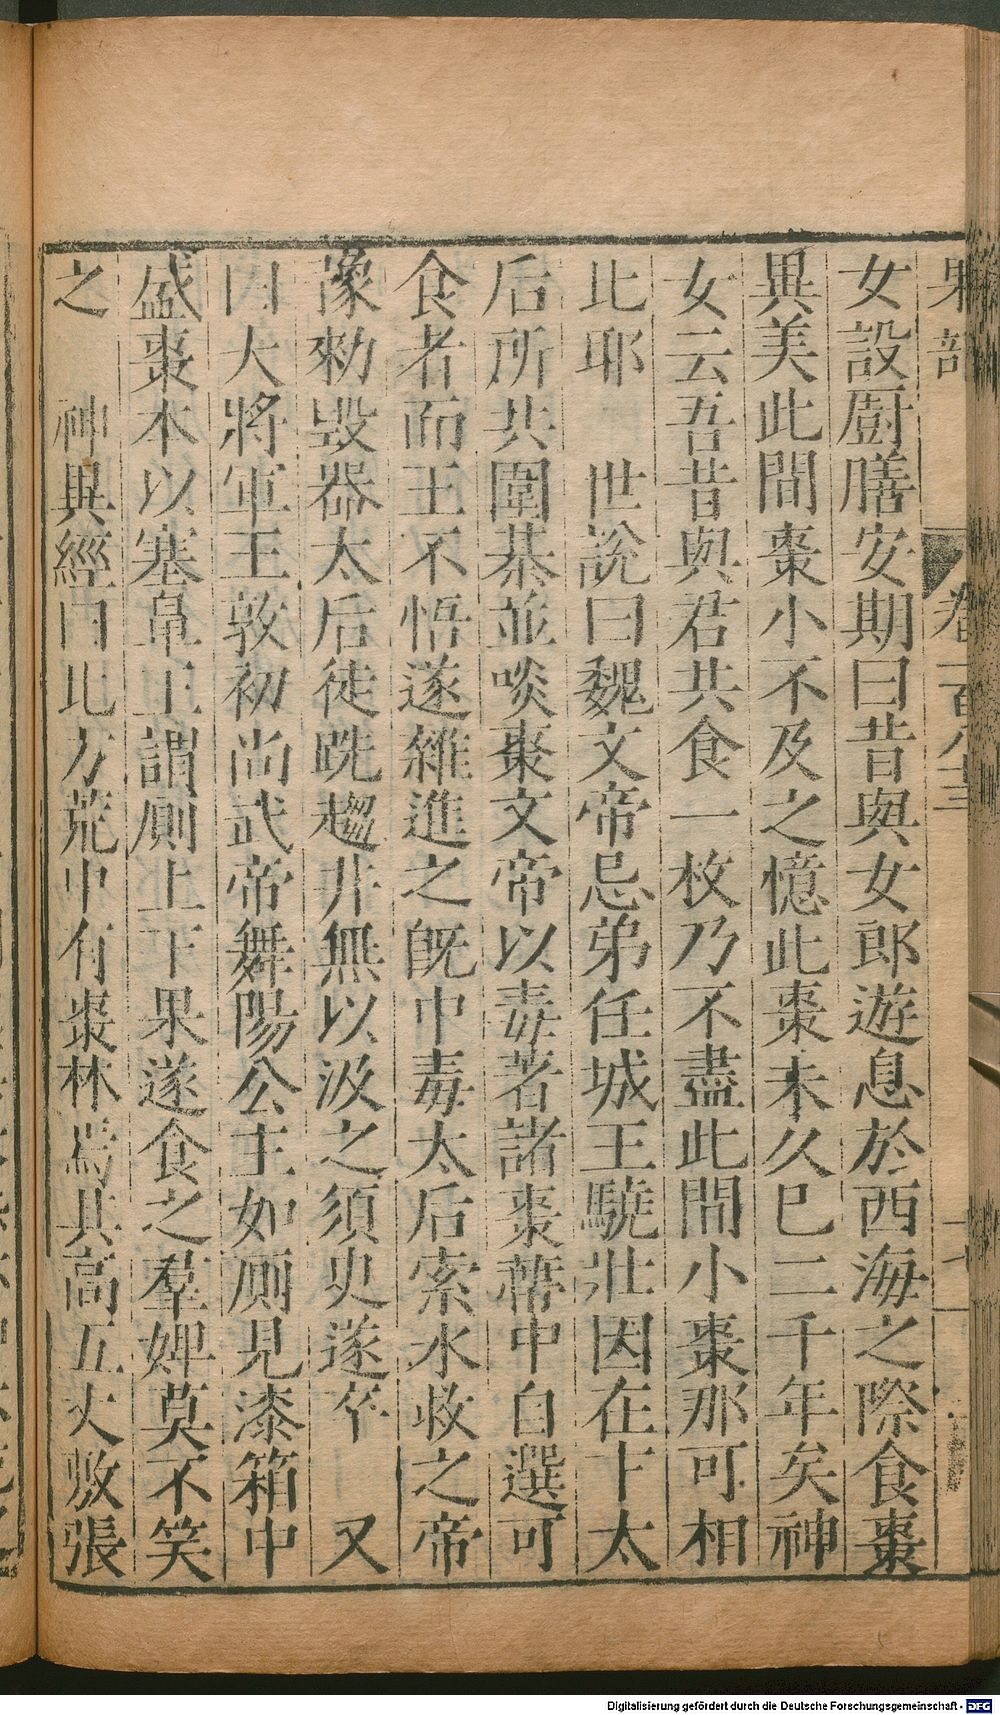 女設廚膳安期曰昔與女郎遊息於西海之際食棗
異美此間棗小不及之憶此棗未久巳二千年矣神
女云吾昔與君共食一枚乃不盡此間小棗那可相
比耶　世說曰魏文帝忌弟任城王驍壯因在卞太
后所共圍棊並啖棗文帝以毒著諸棗蔕中自選可
食者而王不悟遂雜進之旣中毒太后索水救之帝
豫勑毀器太后徒跣趨井無以汲之須臾遂卒　又
曰大將軍王敦初尚武帝舞陽公主如厠見漆箱中
盛棗本以塞鼻王謂厠上下果遂食之羣婢莫不笑
之　神異經曰北方荒中有棗林焉其高五丈敷張
果部
卷一百八十三
Digitalisierung gefördert durch die Deutsche Forschungsgemeinschaft - DFG